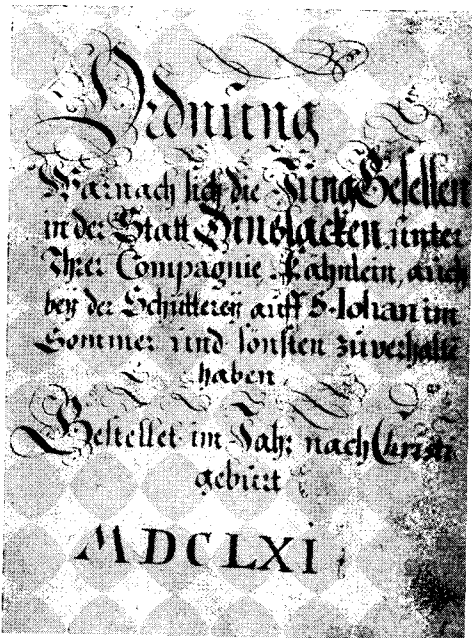 Ordnung
Warnach sich die Jung Gesellen
in der Statt Dinslacken, unter
Ihrer Compagnie, Fähnlein, auch
bey der Schütterey auff S. Johan im
Sommer und sonsten zuverhalte
haben.
Bestellet im Jahr nach Christi
geburt
MDCLXI